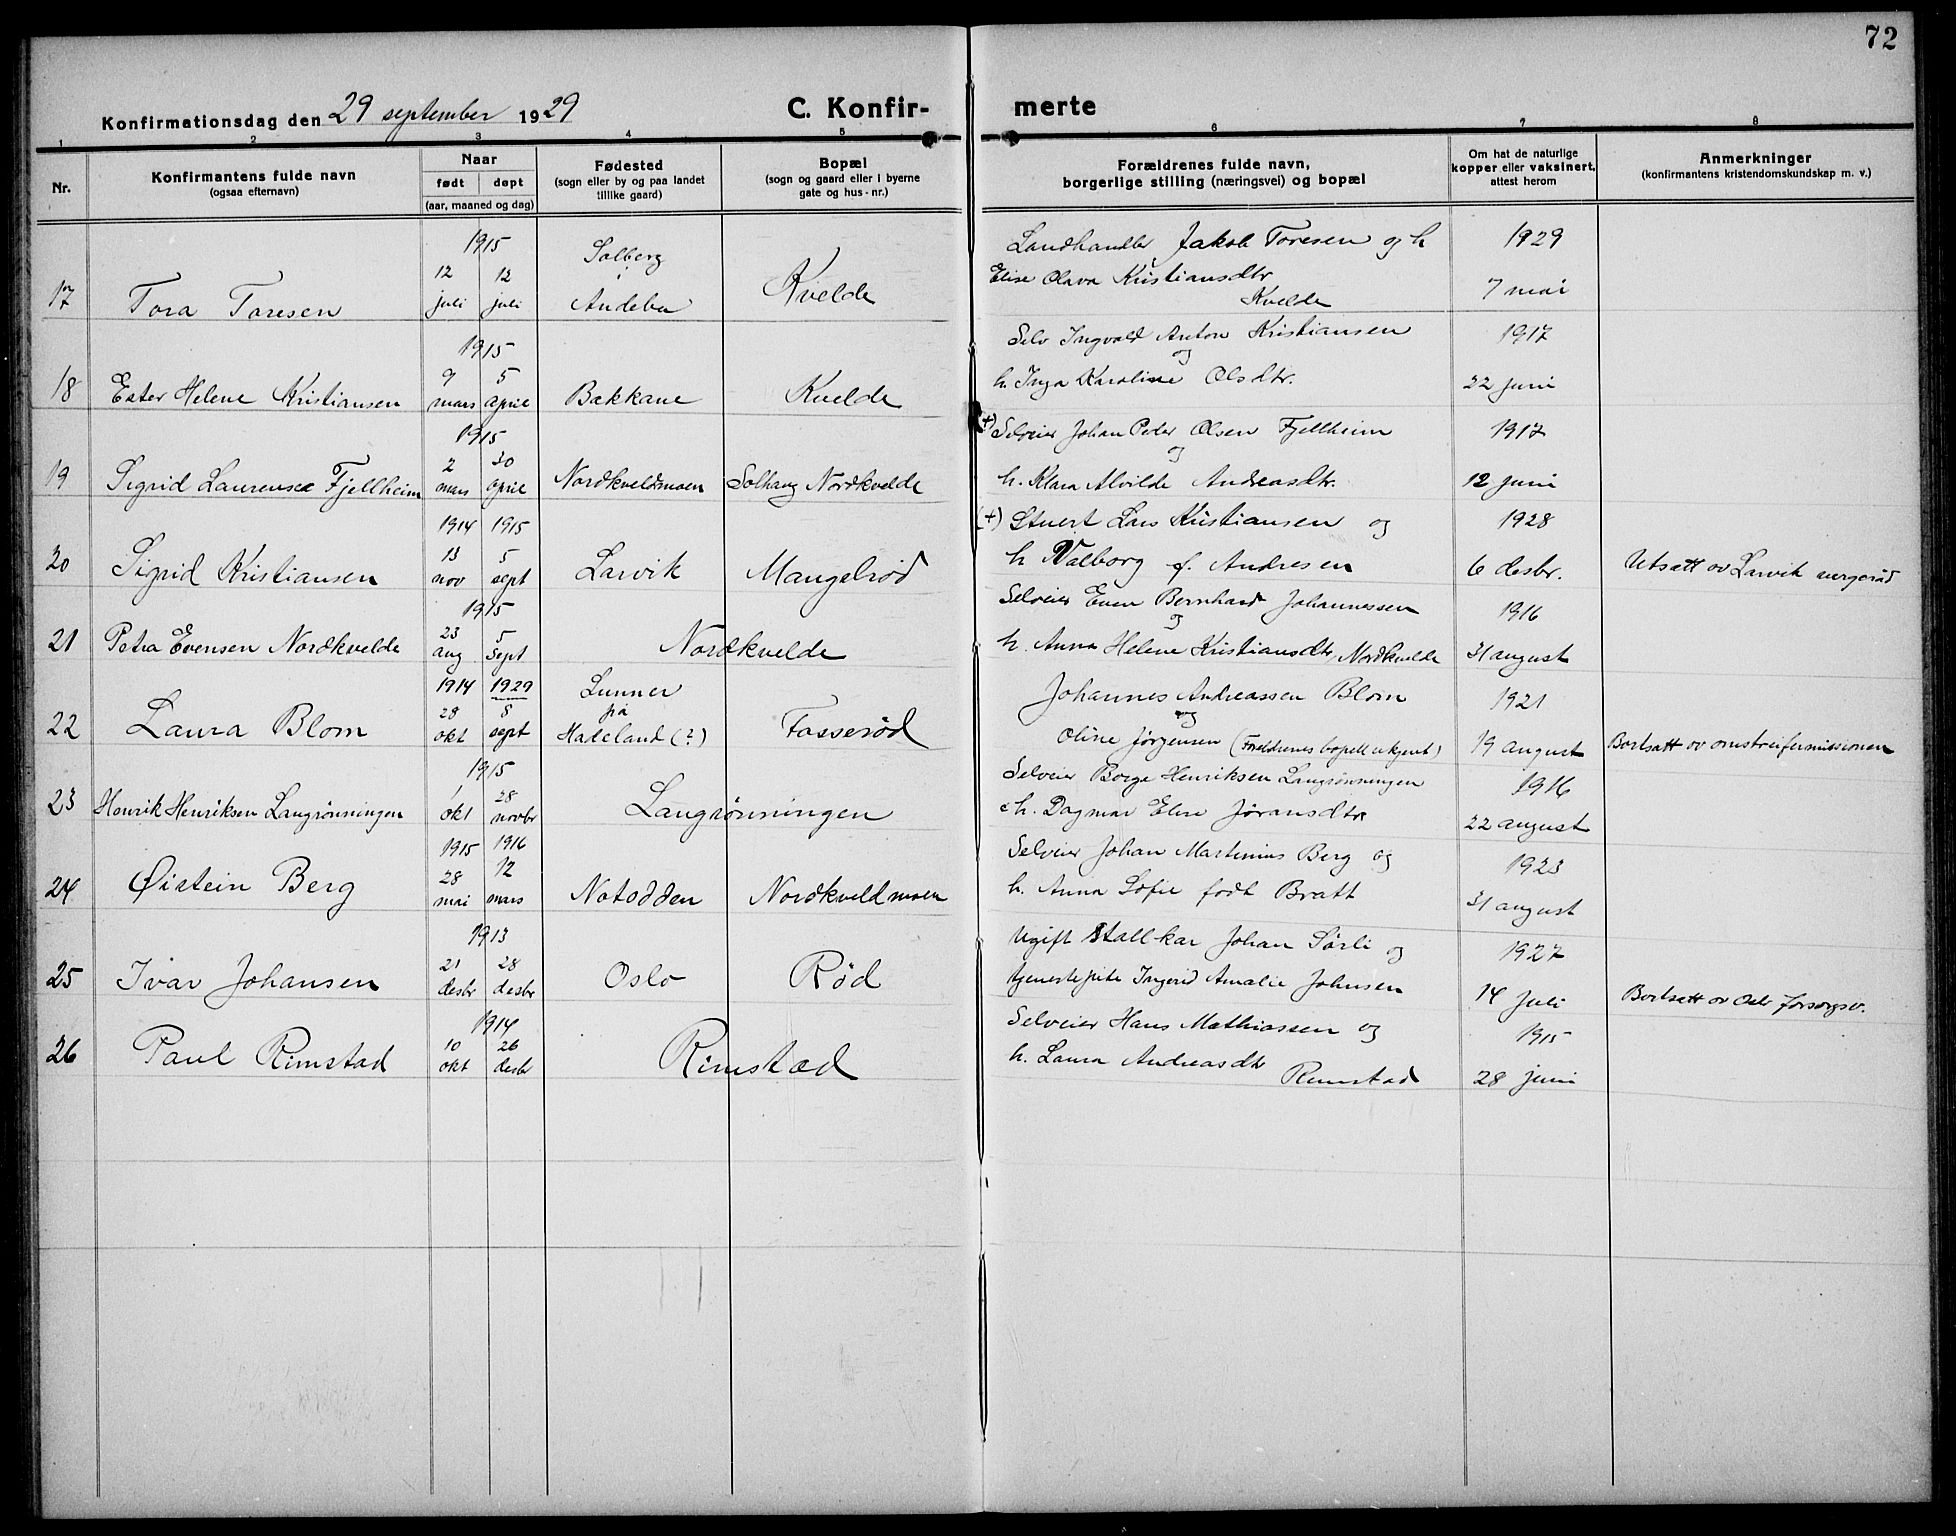 72
Konfirmationsdag den 29 september 1929
C. Konfir- merte
1 2 3 4 5 6 7 8
Nr.
Konfirmantens fulde navn
(ogsaa efternavn)
Naar
født døpt
(aar, maaned og dag)
Fødested
(sogn eller by og paa landet
tillike gaard)
Bopæl
(sogn og gaard eller i byerne
gate og hus-nr.)
Forældrenes fulde navn,
borgerlige stilling (næringsvei) og bopæl
Om hat de naturlige
kopper eller vaksinert,
attest herom
Anmerkninger
(konfirmantens kristendomskundskap m. v.)
1915 Solberg Landhandler Jakob Toresen og h 1929
12 12 i Elise Olava Kristiansdtr
17 Tora Toresen juli juli Andebu Kvelde Kvelde 7 mai
1915 Selv Ingvald Anton Kristiansen 1917
9 5 og
18 Ester Helene Kristiansen mars april Bakkane Kvelde h. Inga Karoline Olsdtr. 22 juni
1915 (+) Selveier Johan Peder Olsen Fjellheim 1917
2 30 og
19 Sigrid Laurense Fjellheim mars april Nordkveldmoen Solhaug Nordkvelde h. Klara Alvilde Andreasdtr. 12 juni
1914 1915 (+) Stuert Lars Kristiansen og 1928
13 5
20 Sigrid Kristiansen nov sept Larvik Mangelrød h Valborg f. Andresen 6 desbr. Utsatt ov Larvik vergeråd
1915 Selveier Even Bernhard Johannessen 1916
23 5 og
21 Petra Evensen Nordkvelde aug sept Nordkvelde h. Anna Helene Kristiansdtr Nordkvelde 31 august
1914 1929 Lunner Johannes Andreassen Blom 1921
28 8 på og
22 Laura Blom okt sept Hadeland (?) Fosserød Oline Jørgensen (Foreldrenes bopell ukjent) 19 august Bortsatt ov omstreifermissionen
1915 Selveier Borge Henriksen Langrønningen 1916
1 28
23 Henrik Henriksen Langrønningen okt novbr Langrønningen h. Dagmar Elise Jøransdtr 22 august
1915 1916 Selveier Johan Martinius Berg og 1923
28 12
24 Øistein Berg mai mars Notodden Nordkveldmoen h. Anna Sofie født Bratt 31 august
1913 Ugift Stallkar Johan Sørli og 1927
21 28
25 Ivar Johansen desbr desbr Oslo Rød tjenestepike Ingerid Amalie Johnsen 14 juli Bortsatt ov Oslo forsorgsv.
1914 Selveier Hans Mathiassen og 1915
10 26
26 Paul Rimstad okt desbr Rimstad h. Laura Andreasdtr
Rimstad 28 juni